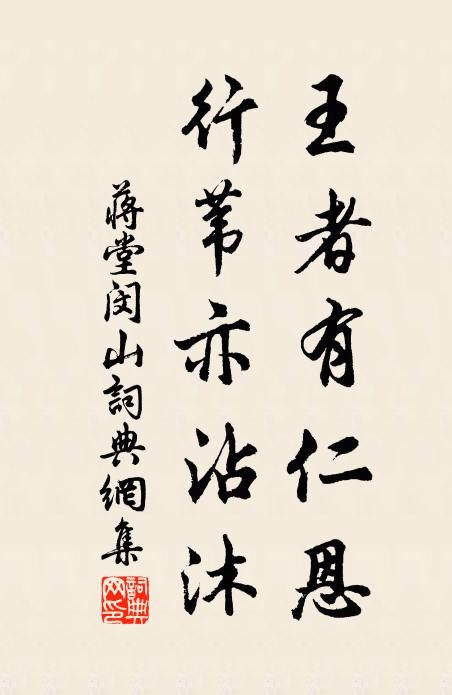 王者有仁恩
行苇亦沾沐
蒋堂闵山詞典網集
詞典网印